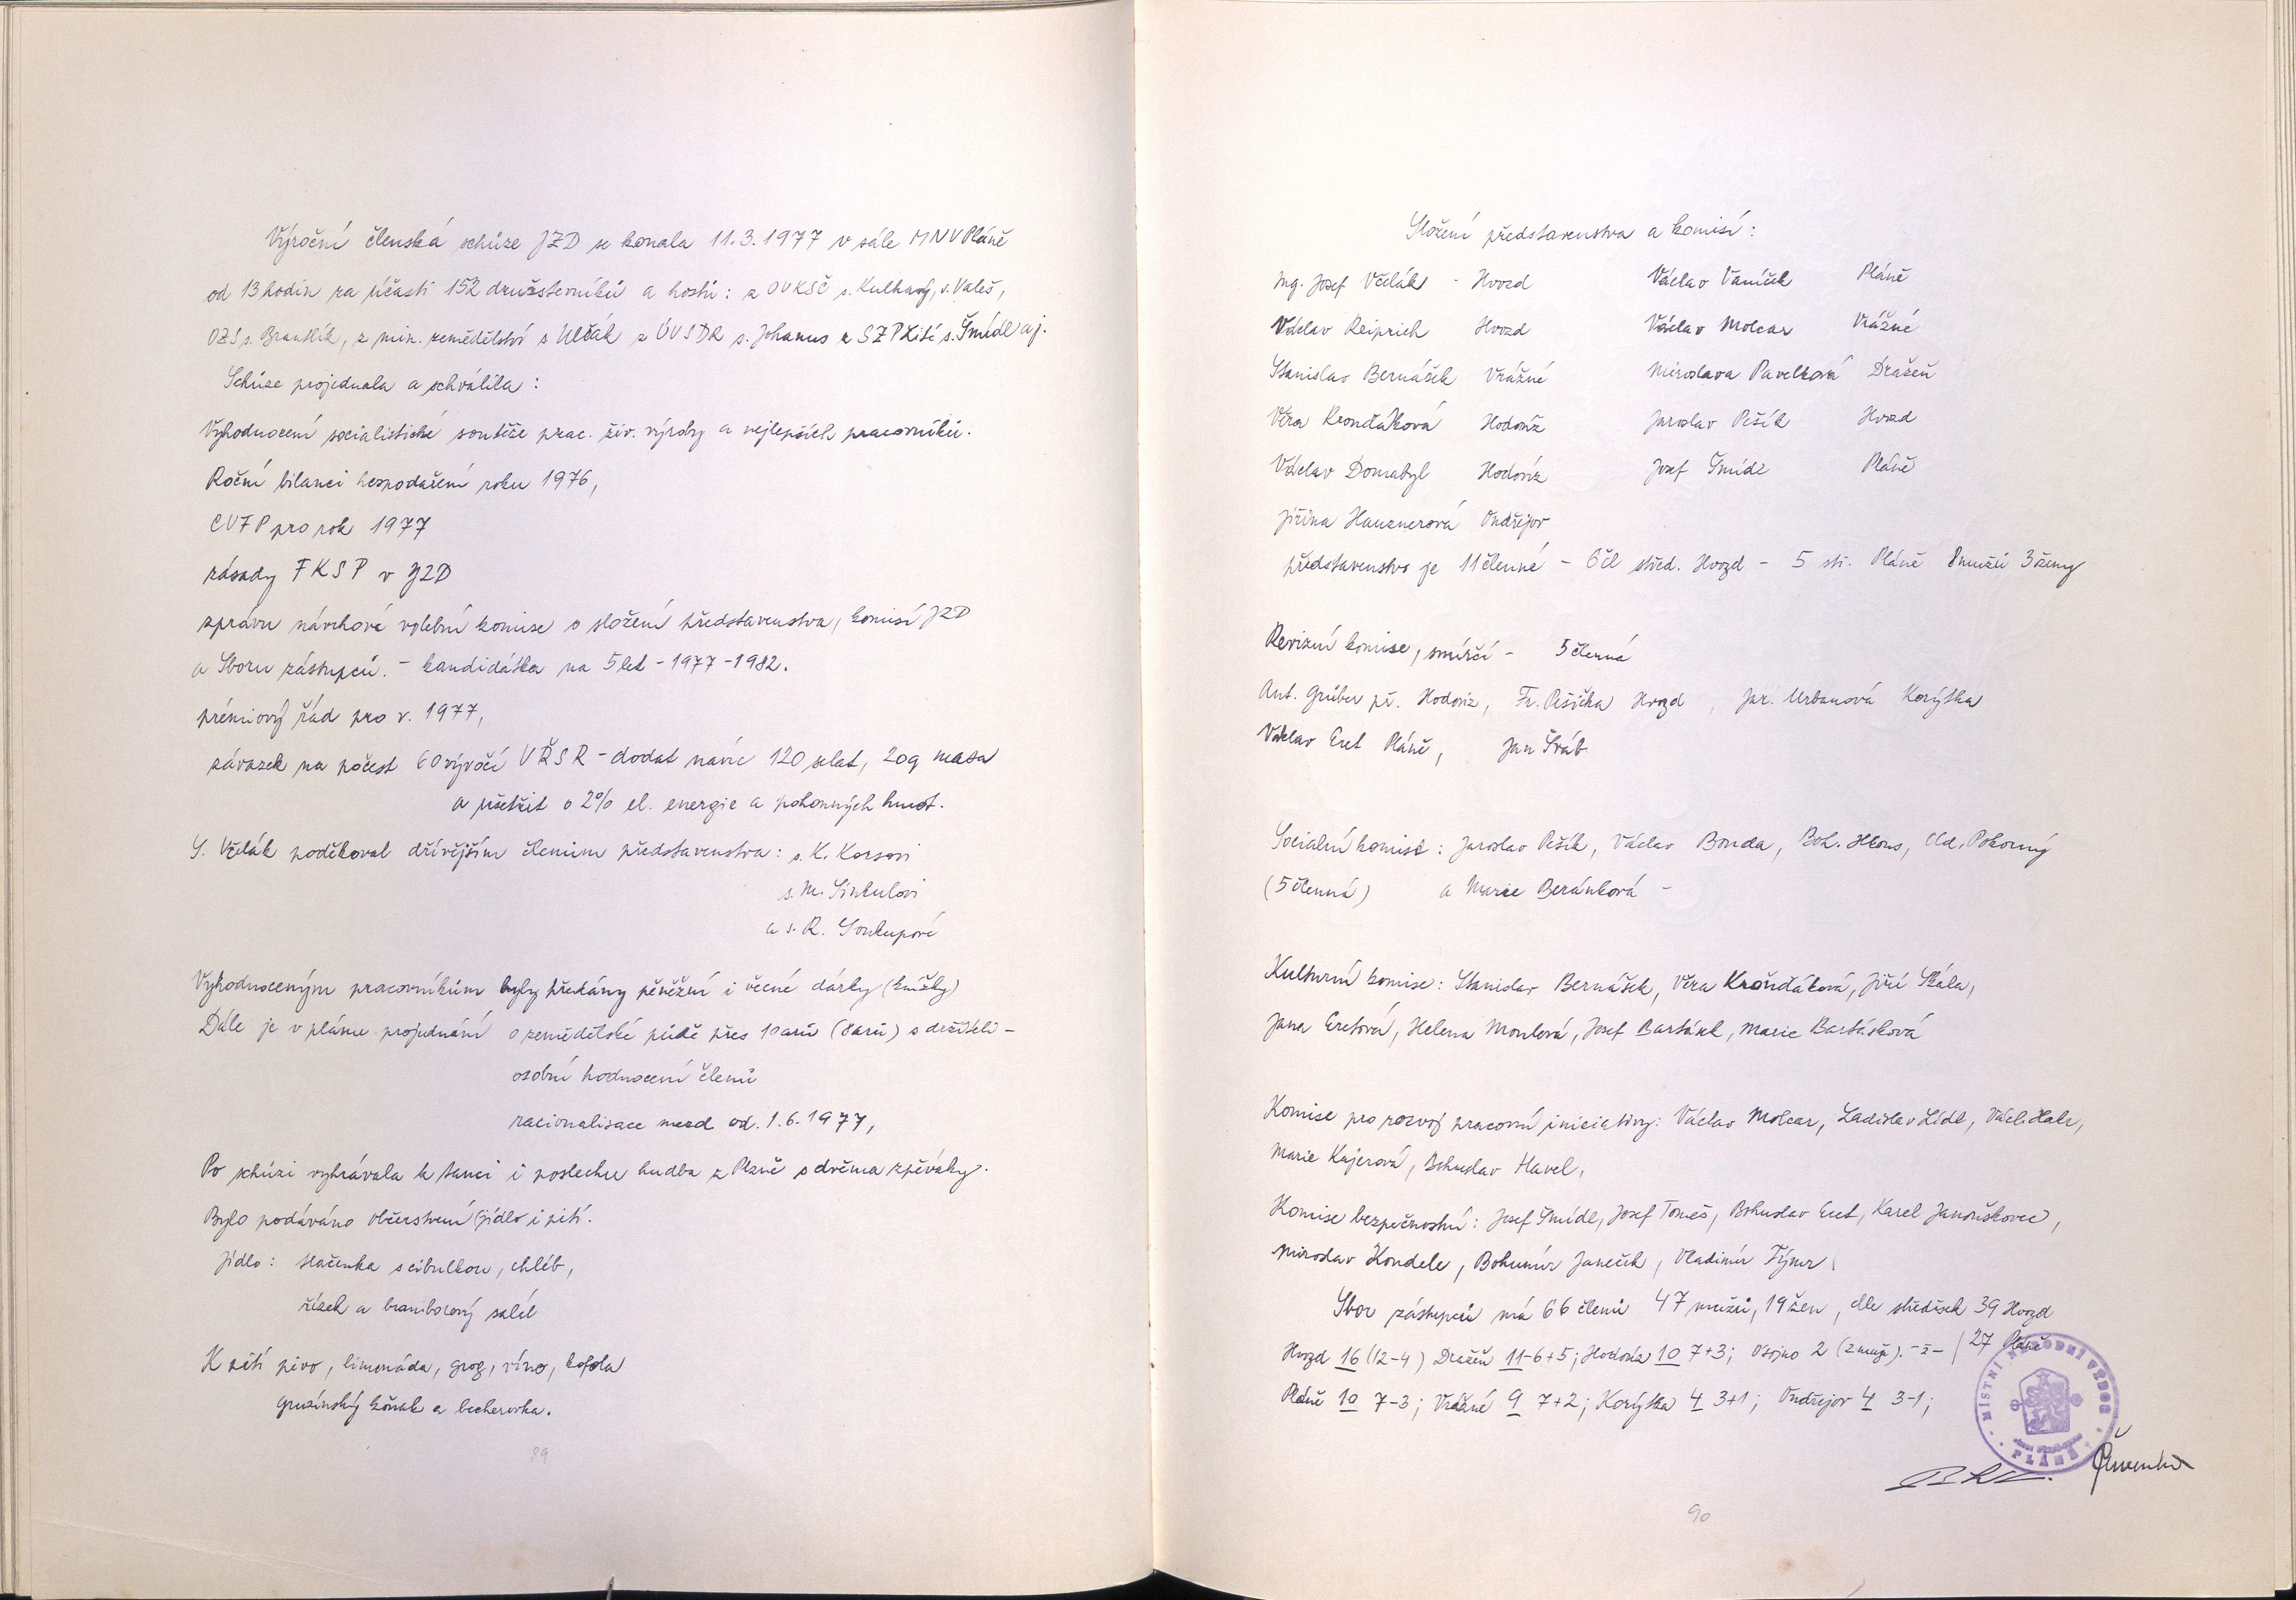 Výroční členská schůze JZD se konala 11.3.1977 v sále MNV Pláně
od 13 hodin za účasti 152 družstevníků a hostů: z OVKSČ s. Kulhavý, s. Valeš,
OZS s. Brandlík, z min. zemědělství s Ulčák z ÚVSDR s. Johanus z SZP Žití s. Šmídl aj.
Schůze projednala a schválila:
Vyhodnocení socialistické soutěže prac. živ. výroby a nejlepších pracovníků.
Roční bilanci hospodaření roku 1976,
CVFP pro rok 1977
zásady FKSP v JZD
zprávu návrhové volební komise o složení představenstva, komisí JZD
a Sboru zástupců. - kandidátka na 5 let - 1977-1982.
prémiový řád pro r. 1977,
závazek na počest 60 výročí VŘSR - dodat navíc 120 selat, 20q masa
a ušetřit o 2% el. energie a pohonných hmot.
S. Včelák poděkoval dřívějším členům představenstva: s. K. Korsovi
s. M. Sinkulovi
a s. R. Soukupové
Vyhodnoceným pracovníkům byly předány peněžní i věcné dárky (knížky)
Dále je v plánu projednání o zemědělské půdě přes 10arů (8arů) s držiteli -
osobní hodnocení členů
racionalisace mezd od. 1.6.1977,
Po schůzi vyhrávala k tanci i poslechu hudba z Plzně s dvěma zpěváky.
Bylo podáváno občerstvení (jídlo i pití.
Jídlo: tlačenka s cibulkou, chléb,
řízek a bramborový salát
K pití pivo, limonáda, grog, víno, kofola
gruzínský koňak a becherovka.
89
Složení představenstva a komisí:
Ing. Josef Včelák - Hvozd Václav Vaníček Pláně
Václav Reiprich Hvozd Václav Molcar Vrážné
Stanislav Bernášek Vrážné Miroslava Pavelková Dražeň
Věra Kronďáková Hodoviz Jaroslav Pešík Hvozd
Václav Domabyl Hodoviz Josef Šmídl Pláně
Jiřina Hauznerová Ondřejov
představenstvo je 11 členné - 6 čl střed. Hvozd - 5 stř. Pláně 8mužů 3ženy
Revizní komise, smírčí - 5 členná
Ant. Grüber př. Hodoviz, Fr. Pešička Hvozd, Jar. Urbanová Korýtka
Václav Eret Pláně, Jan Šváb
Sociální komise: Jaroslav Pešík, Václav Bouda, Boh. Hons, Old. Pokorný
(5 členná) a Marie Beránková -
Kulturní komise: Stanislav Bernášek, Věra Kronďáková, Jiří Skála,
Jana Eretová, Helena Moulová, Josef Bartásek, Marie Bartásková
Komise pro rozvoj pracovní iniciativy: Václav Molcar, Ladislav Lídl,
Marie Kajerová, Bohuslav Havel,
Komise bezpečnostní: Josef Šmídl, Josef Tomeš, Bohuslav Eret, Karel Janouškovec,
Miroslav Kondele, Bohumír Janeček, Vladimír Týner
Sbor zástupců má 66 členů 47 mužů, 19 žen, dle středisek 39 Hvozd
Hvozd 16 (12-4) Dražeň 11-6+5; Hodoviz 10 7+3; Osojno 2 (2 muži). / 27 Pláně
Pláně 10 7-3; Vrážné 9 7+2; Korýtka 4 3+1; Ondřejov 4 3-1;
MÍSTNÍ NÁRODNÍ VÝBOR
PLÁNĚ
90